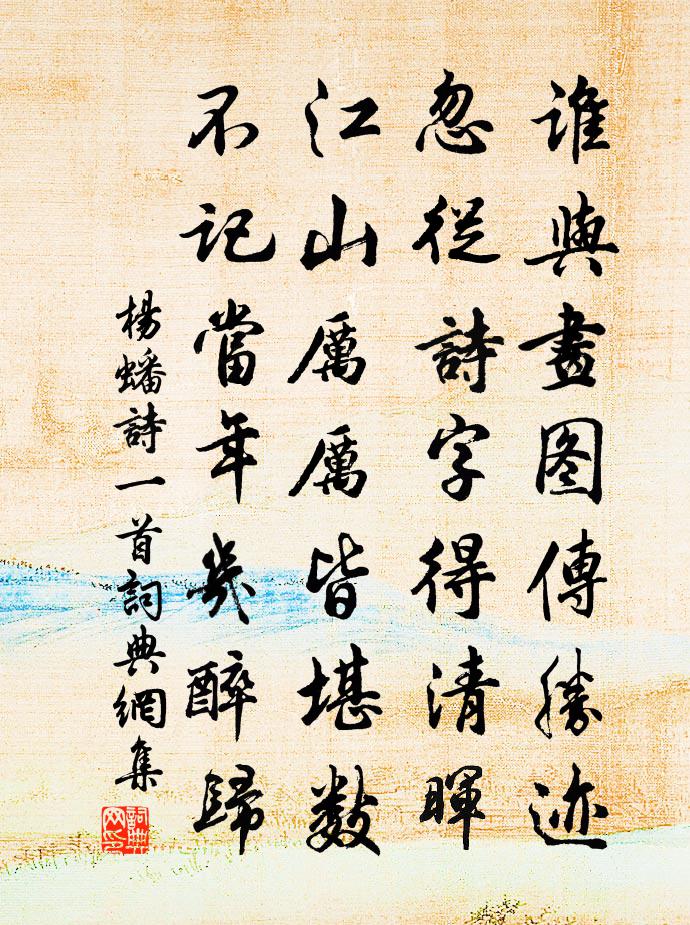 誰與畫图傳勝迹
忽從詩字得清暉
江山厲厲皆堪數
不記當年幾醉歸
楊蟠詩一首詞典網集
詞典
网印